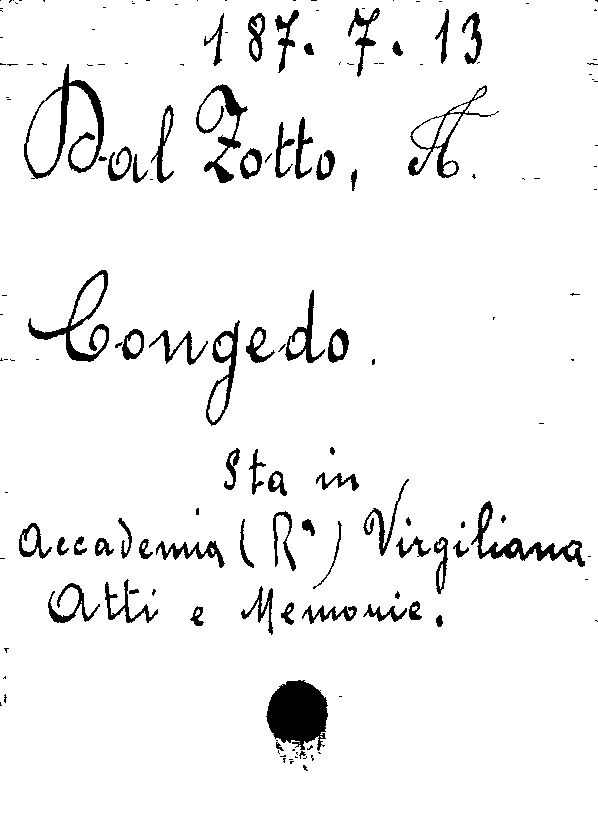 187. 7. 13
Dal Zotto, A.
Congedo.
Sta in
Accademia (Rª) Virgiliana
Atti e Memorie.